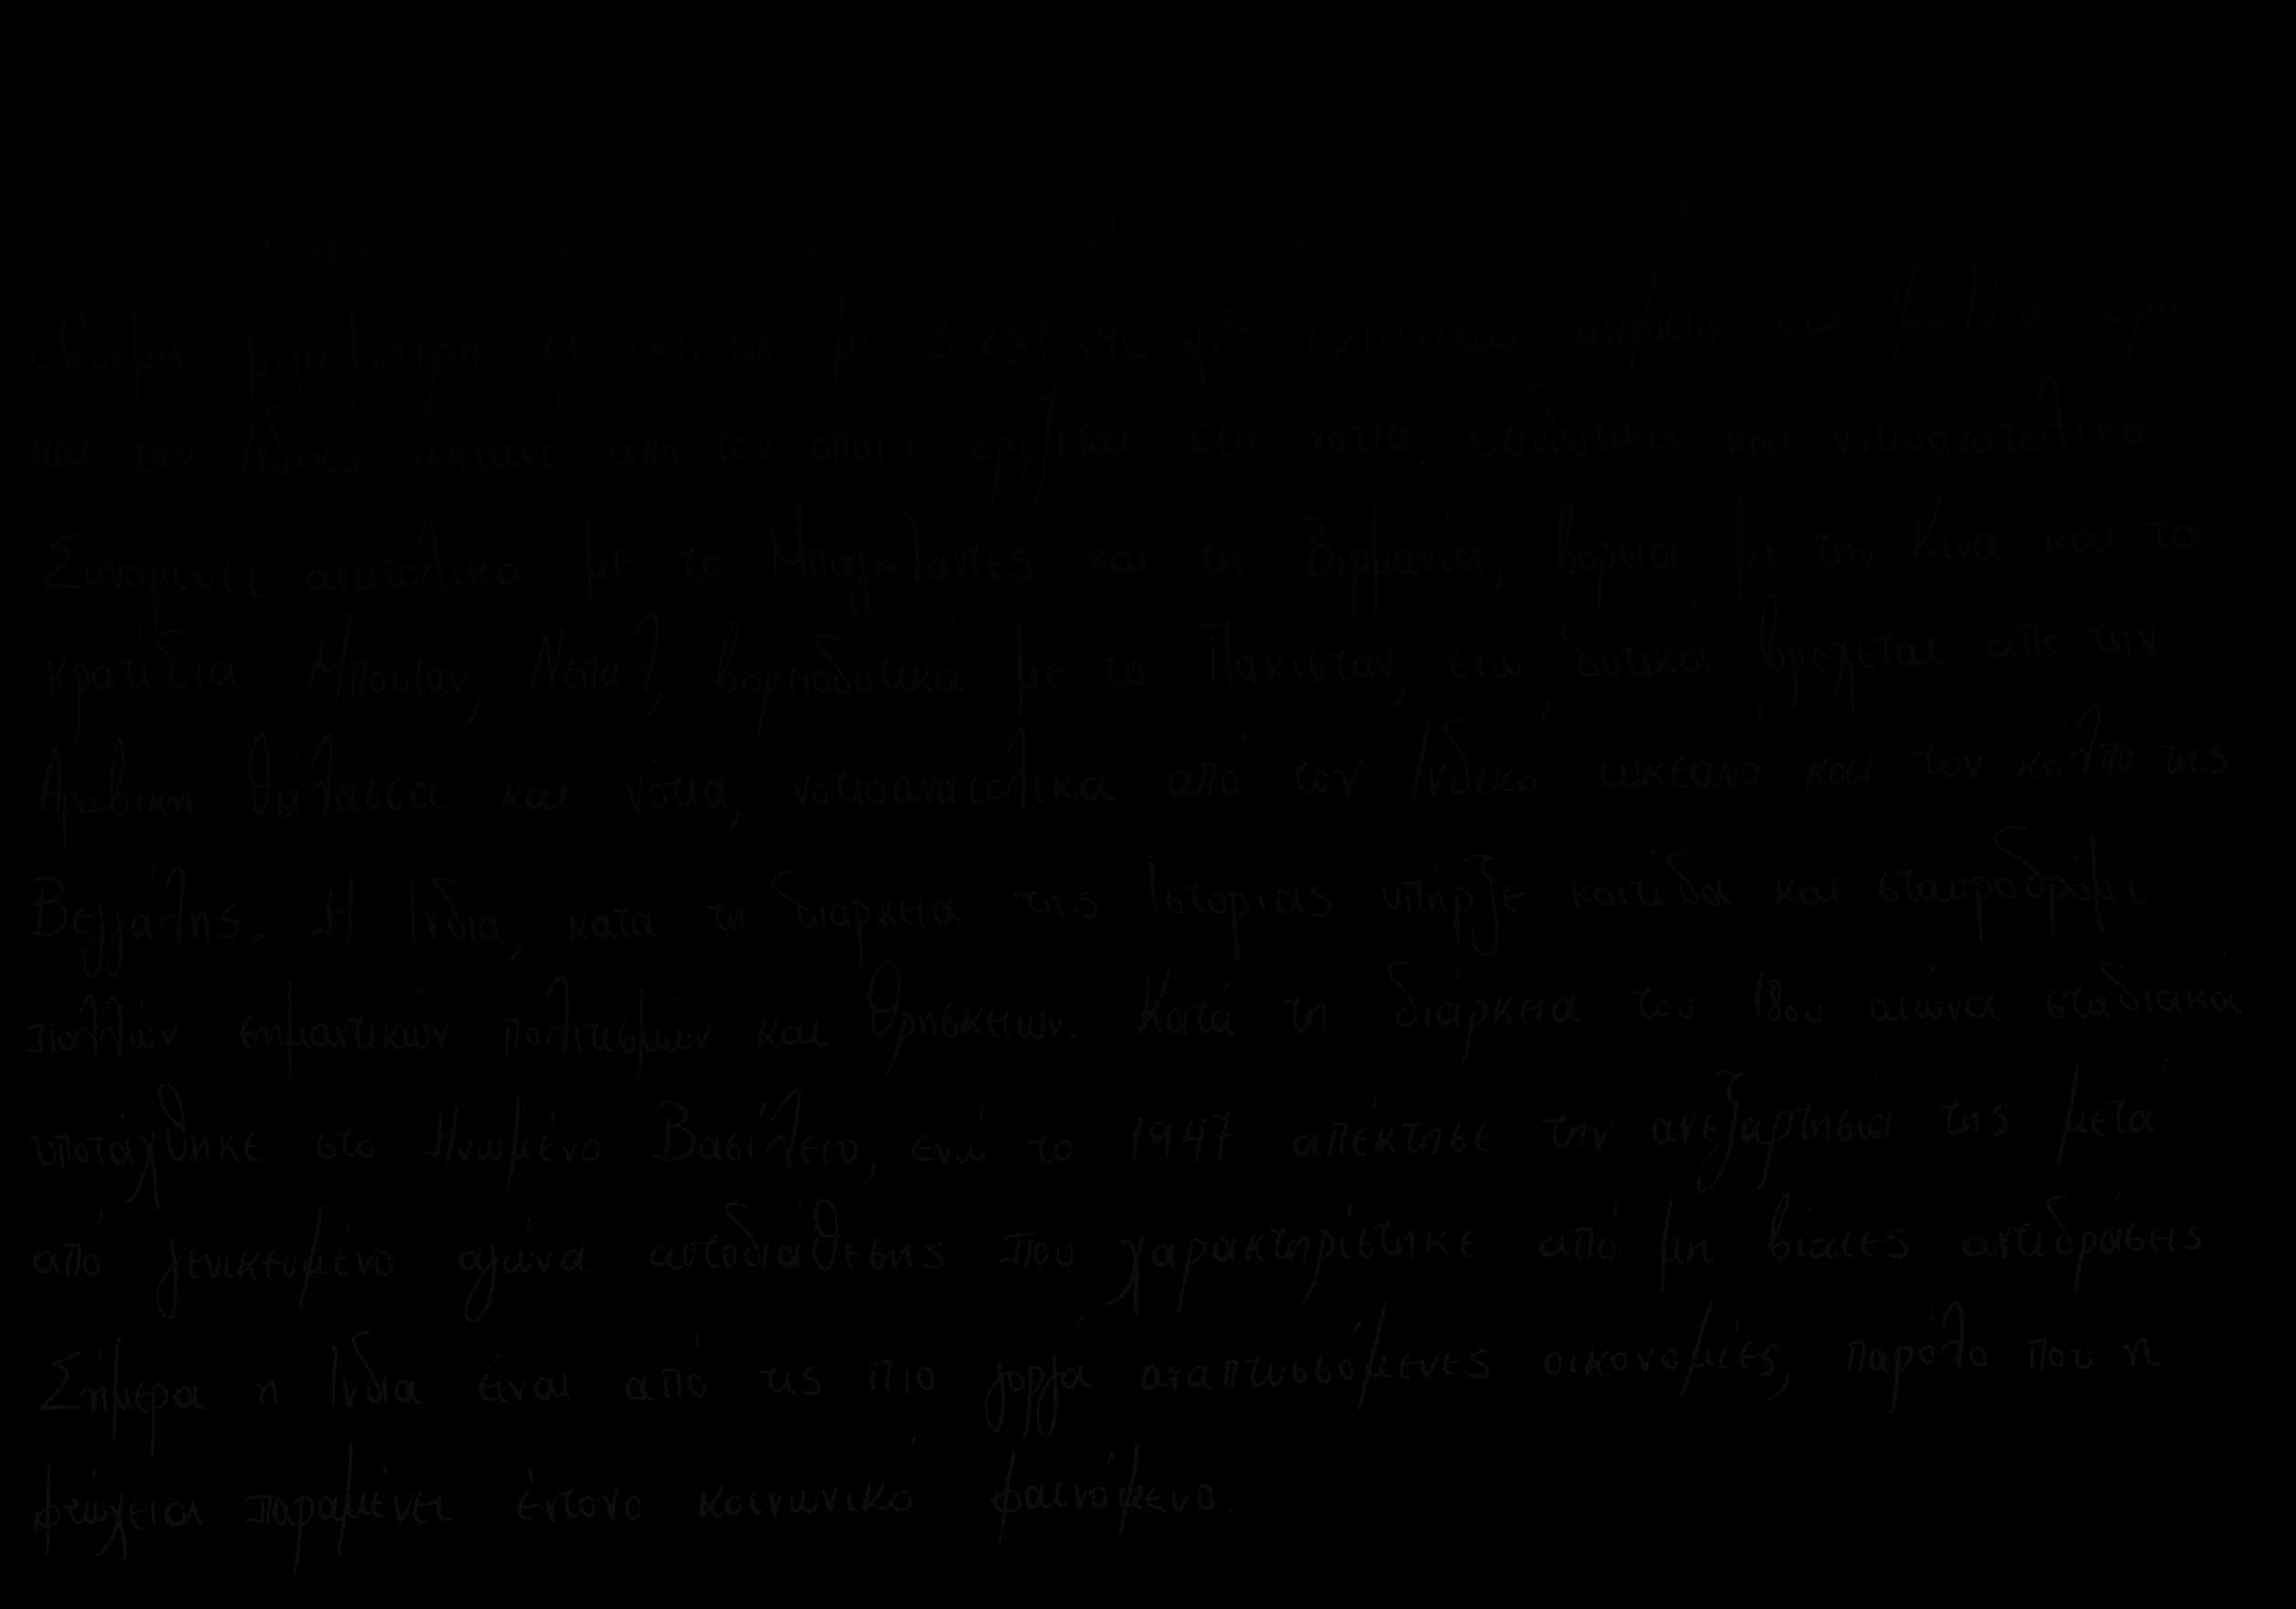 δεύτερη μεγαλύτερη χώρα παγκοσμίως σε πληθυσμό, με 1.166.079.217 κατοίκους και η
έβδομη μεγαλύτερη σε έκταση με 3.287.590 χλμ². Εκτείνεται ανάμεσα στα Ιμαλάια όρη
και τον Ινδικό ωκεανό από τον οποίο ορίζεται στα νότια, νοτιοδυτικά και νοτιοανατολικά.
Συνορεύει ανατολικά με το Μπαγκλαντές και τη Βιρμανία, βόρεια με την Κίνα και τα
κρατίδια Μπουτάν, Νεπάλ, βορειοδυτικά με το Πακιστάν, ενώ δυτικά βρέχεται από την
Αραβική θάλασσα και νότια, νοτιοανατολικά από τον Ινδικό ωκεανό και τον κόλπο της
Βεγγάλης. Η Ινδία, κατά τη διάρκεια της Ιστορίας υπήρξε κοιτίδα και σταυροδρόμι
πολλών σημαντικών πολιτισμών και θρησκειών. Κατά τη διάρκεια του 18ου αιώνα σταδιακά
υποτάχθηκε στο Ηνωμένο Βασίλειο, ενώ το 1947 απέκτησε την ανεξαρτησία της μετά
από γενικευμένο αγώνα αυτοδιάθεσης που χαρακτηρίστηκε από μη βίαιες αντιδράσεις
Σήμερα η Ινδία είναι από τις πιο γοργά αναπτυσσόμενες οικονομίες, παρόλο που η
φτώχεια παραμένει έντονο κοινωνικό φαινόμενο.